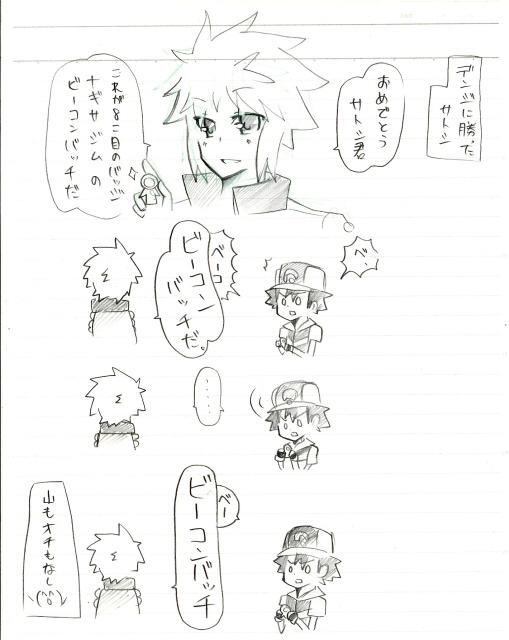 デンジに勝った
サトシ
おめでとう
サトシ君
これが8こ目のバッジ
ナギサジムの
ビーコンバッチだ
べ、
ベーコ
ビーコン
バッチだ。
・・・・
べー
ビーコンバッチ
山もオチもなし
\(^^)/